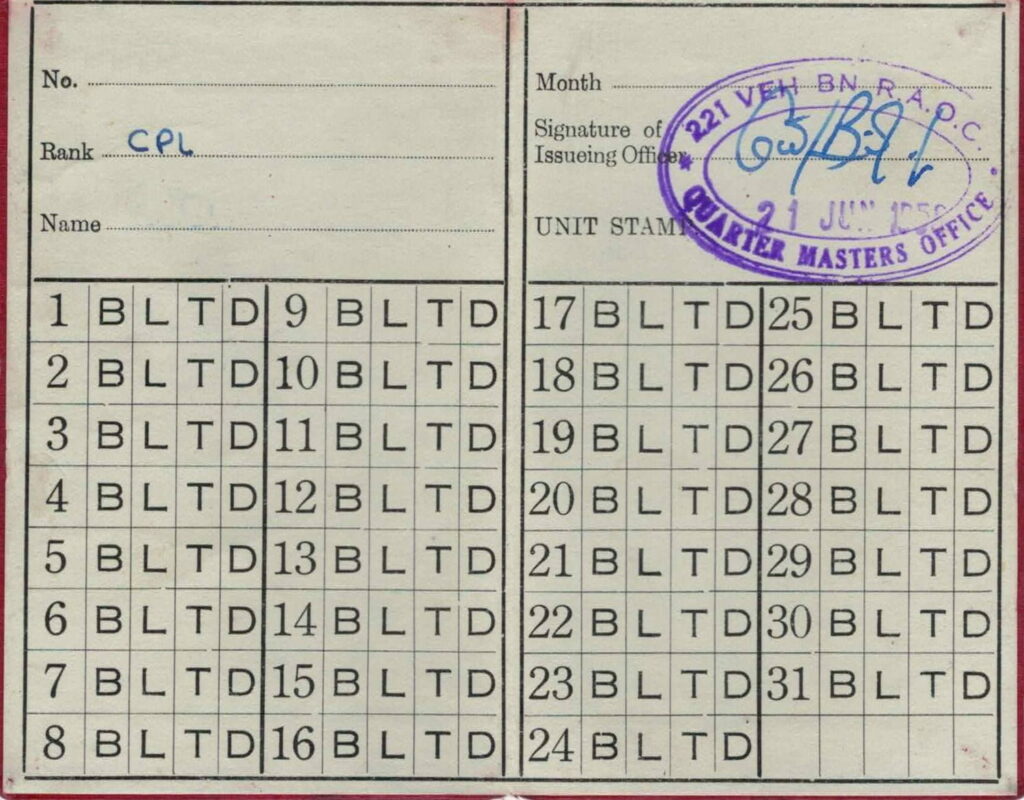 No.
Rank CPL
Name
Month
Signature of
Issueing Officer
UNIT STAMP
* 221 VEH BN R.A.O.C.
21 JUN
QUARTER MASTERS OFFICE
1 B L T D 9 B L T D
2 B L T D 10 B L T D
3 B L T D 11 B L T D
4 B L T D 12 B L T D
5 B L T D 13 B L T D
6 B L T D 14 B L T D
7 B L T D 15 B L T D
8 B L T D 16 B L T D
17 B L T D 25 B L T D
18 B L T D 26 B L T D
19 B L T D 27 B L T D
20 B L T D 28 B L T D
21 B L T D 29 B L T D
22 B L T D 30 B L T D
23 B L T D 31 B L T D
24 B L T D